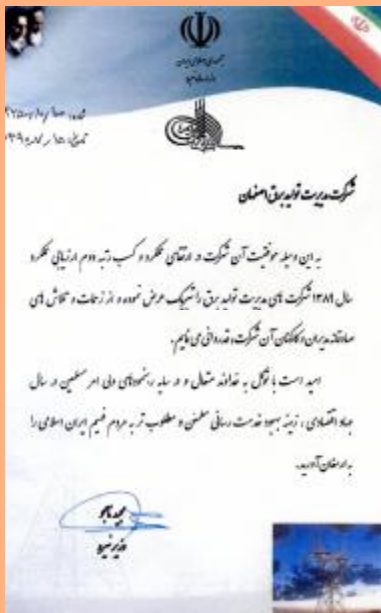 جمهوری اسلامی ایران
وزارت نیرو
شرکت مدیریت تولید برق اصفهان
به این وسیله موفقیت آن شرکت در ارتقای عملکرد و کسب رتبه دوم ارزیابی عملکرد
سال ۱۳۸۹ شرکت های مدیریت تولید برق را تبریک عرض نموده و از زحمات و تلاش های
صادقانه مدیران و کارکنان آن شرکت، قدردانی می نمایم.
امید است با توکل به خداوند متعال و در سایه رهنمودهای ولی امر مسلمین در سال
جهاد اقتصادی، زمینه بهبود خدمت رسانی مطمئن و مطلوب تر به مردم فهیم ایران اسلامی را
به ارمغان آورید.
مجید نامجو
وزیر نیرو